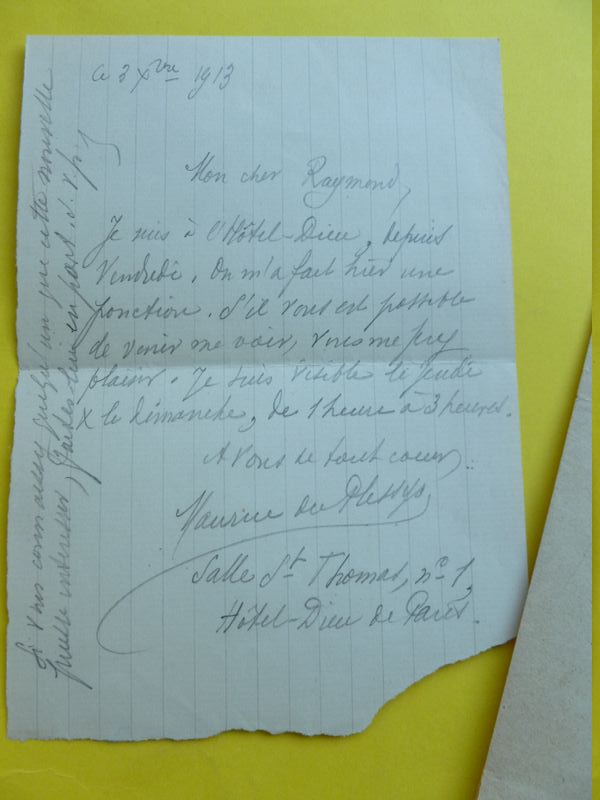 Ce 3 Xbre 1913
Mon cher Raymond,
Je suis à l'Hôtel-Dieu, depuis
Vendredi. On m'a fait hier une
ponction. S'il vous est possible
de venir me voir, vous me ferez
plaisir. Je suis visible le jeudi
& le dimanche, de 1 heure à 3 heures.
A vous de tout coeur,
Maurice du Plessys
Salle St Thomas, no 1,
Hôtel-Dieu de Paris.
Si vous connaissez quelqu'un que cette nouvelle
puisse intéresser, faites-lui en part. s. v. p.